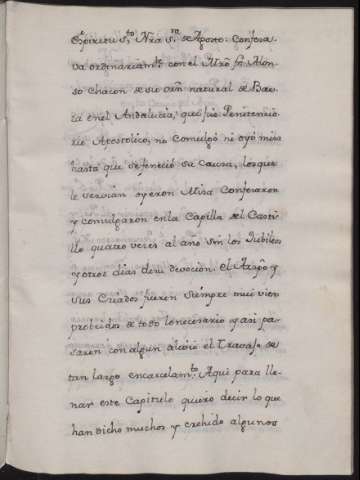 Spiritu S.to Nra S.ra de Agosto: Confesa-
va ordinariam.te con el Mro fr. Alon-
so Chacon de su orñ natural de Bae-
za enel Andalucia, que fue Penitencia-
rio Apostolico, no Comulgó ni oyó misa
hasta que se feneció su Causa, los que
le servian oyeron Misa Confesaron
y comulgaron en la Capilla del Casti-
llo quatro veces al año sin los Jubileos
y otros dias de su devocion. El Arzpo y
sus Criados fueron siempre mui vien
probeidos de todo lo necesario y asi pa-
saron con algun alivio el Travajo de
tan largo encarcelam.to Aqui para lle-
nar este Capitulo quiero decir lo que
han dicho muchos y crehido algunos